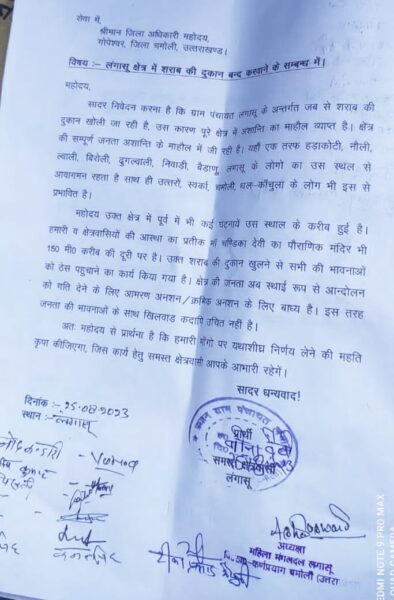 सेवा में,
श्रीमान जिला अधिकारी महोदय,
गोपेश्वर, जिला चमोली, उत्तराखण्ड।
विषय :– लंगासू क्षेत्र में शराब की दुकान बन्द करवाने के सम्बन्ध में।
महोदय,
सादर निवेदन करना है कि ग्राम पंचायत लंगासू के अन्तर्गत जब से शराब की
दुकान खोली जा रही है, उस कारण पूरे क्षेत्र में अशान्ति का माहौल व्याप्त है। क्षेत्र
की सम्पूर्ण जनता अशान्ति के माहौल में जी रही है। यहाँ एक तरफ हडाकोटी, नौली,
ल्वाली, बिरोली, ढुगल्वाली, निवाडी, बैडाणू, लगासू के लोगो का उस स्थल से
आवागमन रहता है साथ ही उत्तरों, स्वर्का, चमोली, थल–कौंचुला के लोग भी इस से
प्रभावित है।
महोदय उक्त क्षेत्र में पूर्व में भी कई घटनायें उस स्थाल के करीब हुई है।
हमारी व क्षेत्रवासियों की आस्था का प्रतीक माँ चण्डिका देवी का पौराणिक मंदिर भी
150 मी0 करीब की दूरी पर है। उक्त शराब की दुकान खुलने से सभी की भावनाओं
को ठेस पहुचाने का कार्य किया गया है। क्षेत्र की जनता अब स्थाई रूप से आन्दोलन
को गति देने के लिए आमरण अनशन / क्रमिक अनशन के लिए बाध्य है। इस तरह
जनता की भावनाओं के साथ खिलवाड कदापि उचित नहीं है।
अतः महोदय से प्रार्थना है कि हमारी माँगो पर यथाशीघ्र निर्णय लेने की महति
कृपा कीजिएगा, जिस कार्य हेतु समस्त क्षेत्रवासी आपके आभारी रहेगें।
सादर धन्यवाद!
दिनांक :–
स्थान :– लंगासू
प्रार्थी
समस्त क्षेत्रवासी
लंगासू
अध्यक्षा
महिला मंगलदल लंगासू
REDMI NOTE 9 PRO MAX